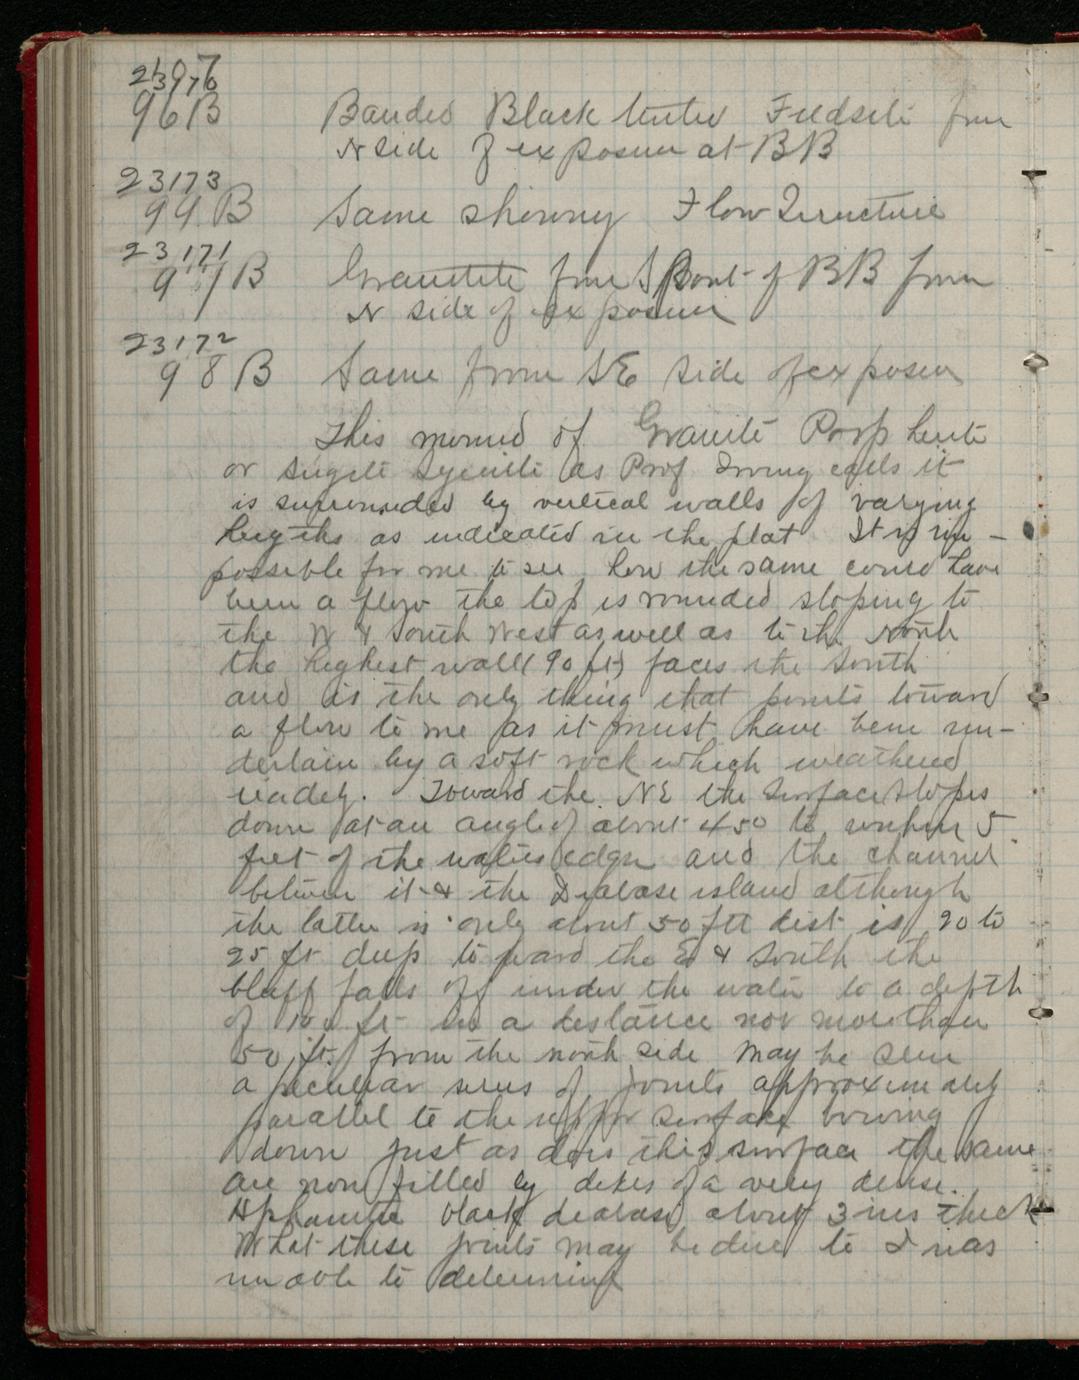 96B Banded Black tinted Feldsite from
N side of exposure at BB
23173
99B Same showing Flow Structure
23171
97B Granitite from S Point of BB from
N side of exposure
23172
98B Same from SE side of exposure
This mound of Granite Porpherite
or Augite Syenite as Prof Irving calls it
is surrounded by vertical walls of varying
heigths as indicated in the plat It is im-
possible for me to see how the same could have
been a flow the top is rounded sloping to
the W & South West as well as to the North
the highest wall (90 ft) faces the South
and is the only thing that points toward
a flow to me as it must have been un-
derlain by a soft rock which weathered
readily. Toward the NE the surface slopes
down at an angle of about 45° to within 5
feet of the waters edge and the channel
between it & the Diabase island although
the latter is only about 50 ft dist is 20 to
25 ft deep toward the E & South the
bluff falls off under the water to a depth
of 100 ft in a distance not more than
50 ft. from the north side may be seen
a peculiar series of joints approximately
parallel to the upper surface bowing
down just as does this surface the same
are now filled by dikes of a very dense.
Aphanitic black diabase about 3 ins thick
What these joints may be due to I was
unable to determine